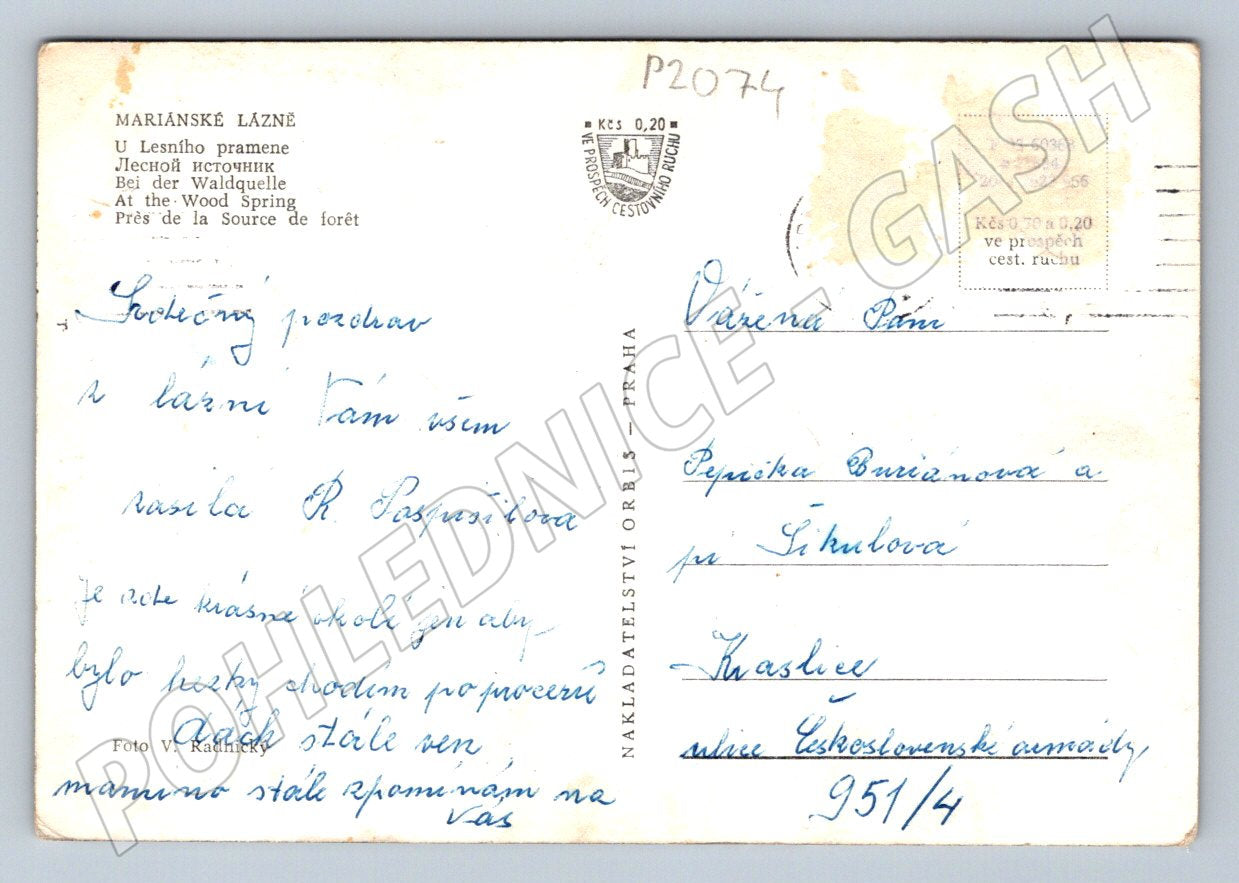 P2074
MARIÁNSKÉ LÁZNĚ
U Lesního pramene
Лесной источник
Bei der Waldquelle
At the Wood Spring
Près de la Source de forêt
Kčs 0,20
VE PROSPĚCH CESTOVNÍHO RUCHU
Kčs 0,30 a 0,20
ve prospěch
cest. ruchu
Srdečný pozdrav
z lázní Vám všem
zasílá R. Pospíšilová
Je zde krásné okolí jen aby
bylo hezky chodím po procedu
rách stále ven
mamino stále vzpomínám na
Vás
Foto V. Radnický
NAKLADATELSTVÍ ORBIS — PRAHA
Vážená Paní
Pepička Buriánová a
pí Šikulová
Kraslice
ulice Československé armády,
951/4
POHLEDNICE - GASH